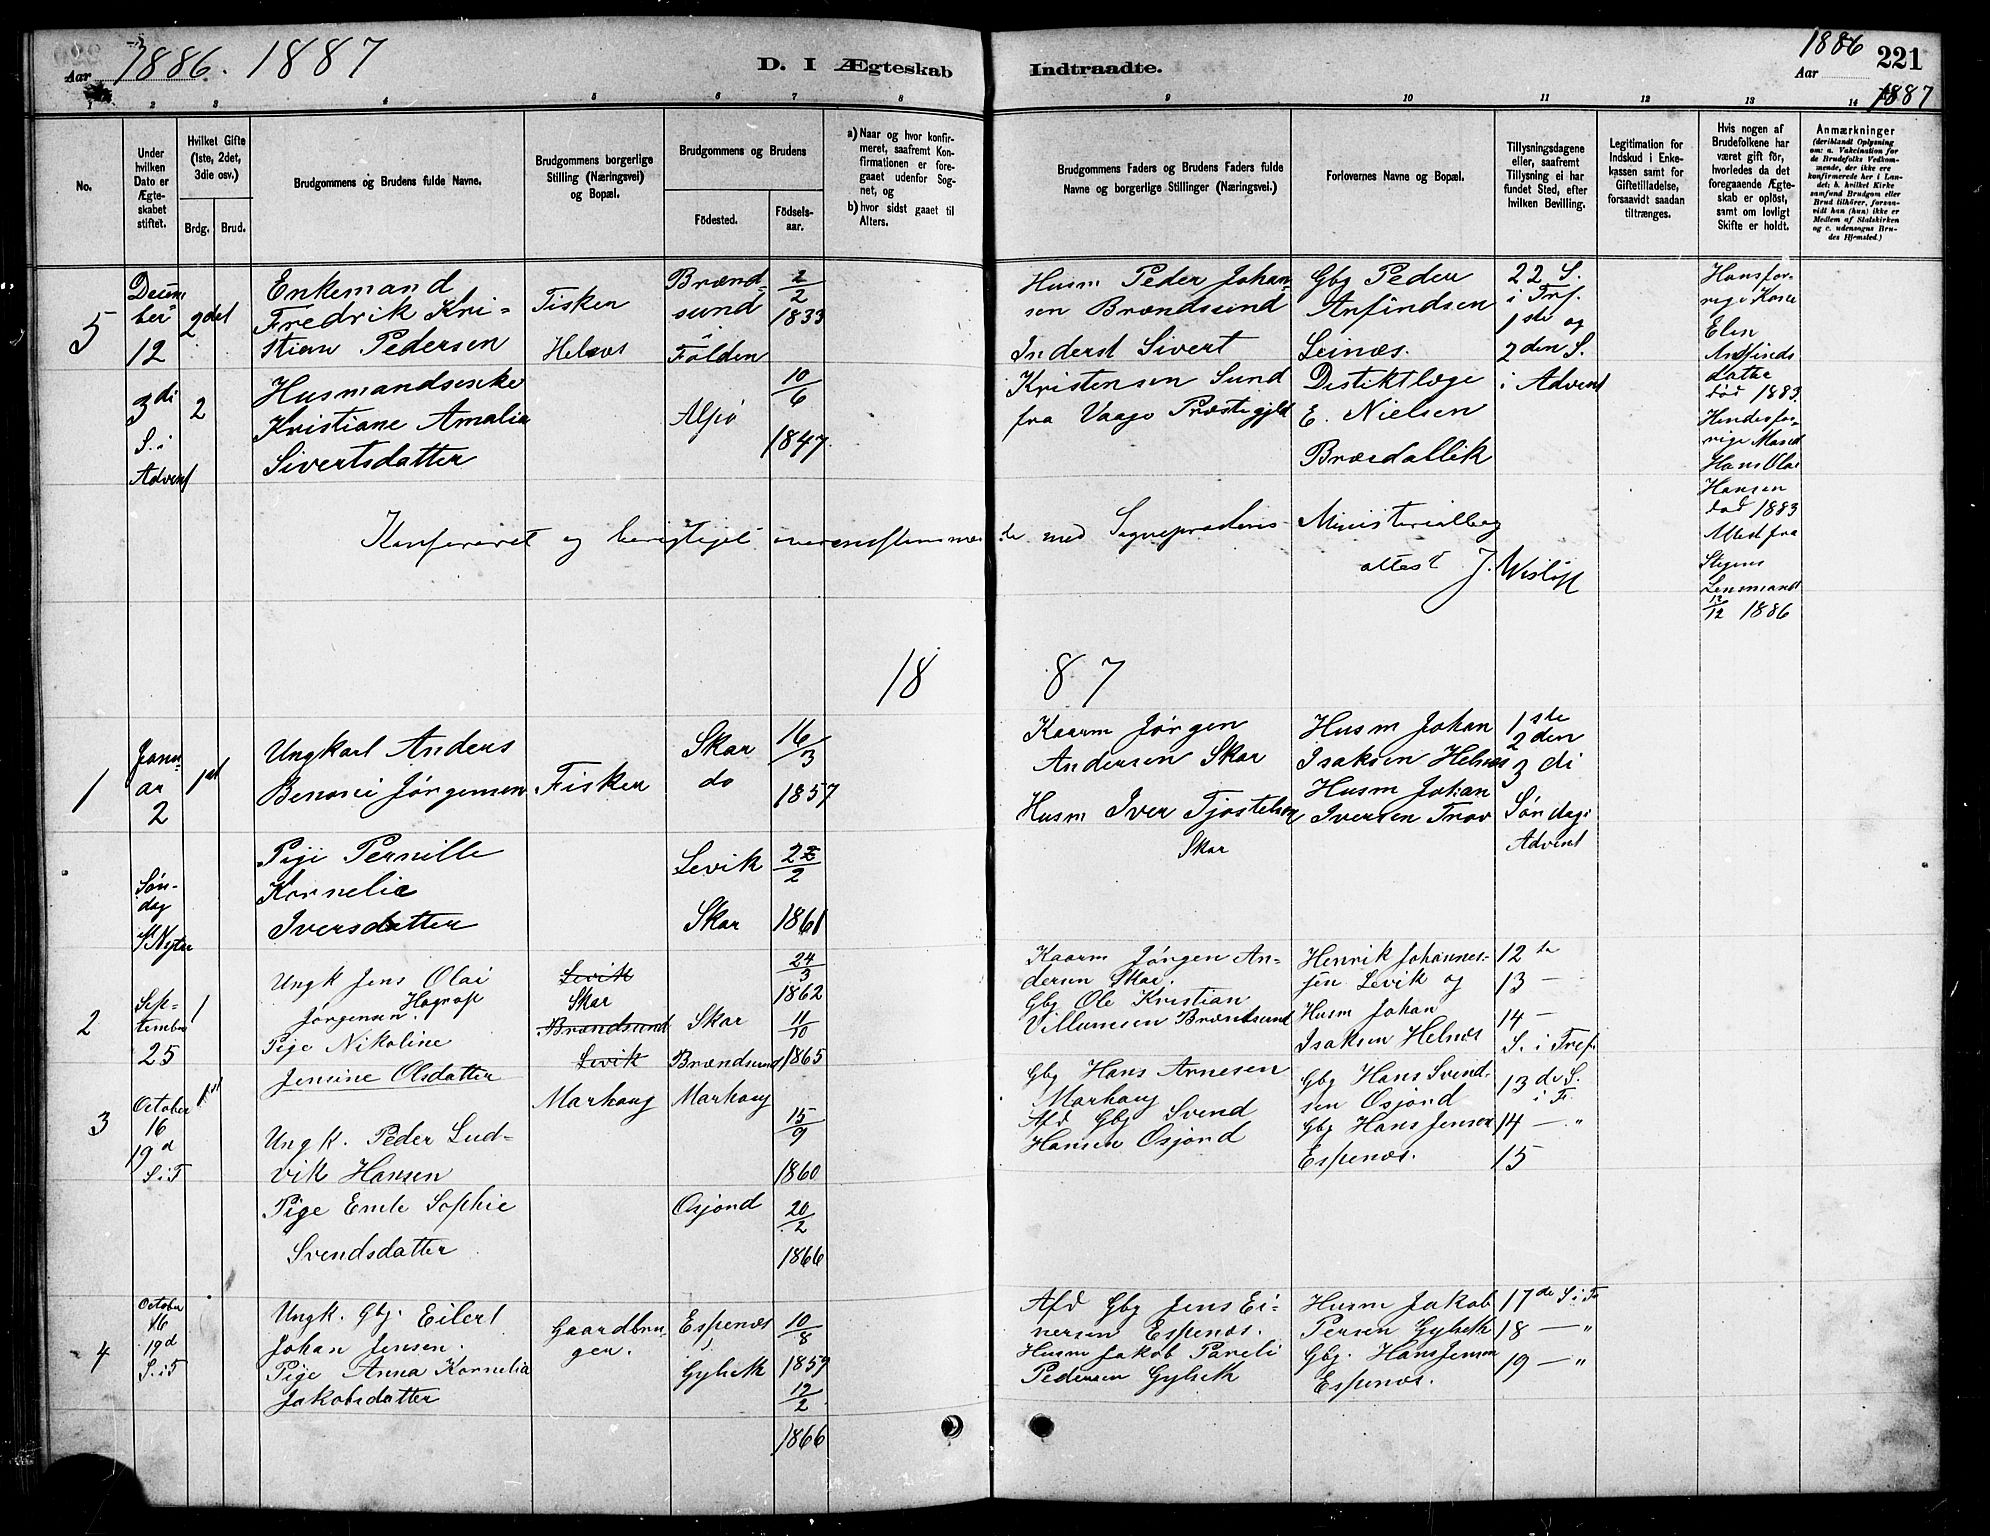 Aar 1886. 1887
D. I Ægteskab Indtraadte.
1886
Aar
221
1887
2 3 4 5 6 7 8 9 10 11 12 13 14
No.
Under hvilken Dato er Ægteskabet stiftet.
Hvilket Gifte (1ste, 2det, 3die osv.)
Brdg. Brud.
Brudgommens og Brudens fulde Navne.
Brudgommens borgerlige Stilling (Næringsvei) og Bopæl.
Brudgommens og Brudens
Födested.
Födselsaar.
a) Naar og hvor konfirmeret, saafremt Konfirmationen er foregaaet udenfor Sognet, og
b) hvor sidst gaaet til Alters.
Brudgommens Faders og Brudens Faders fulde Navne og borgerlige Stillinger (Næringsvei.)
Forlovernes Navne og Bopæl.
Tillysningsdagene eller, saafremt Tillysning ei har fundet Sted, efter hvilken Bevilling.
Legitimation for Indskud i Enkekassen samt for Giftetilladelse, forsaavidt saadan tiltrænges.
Hvis nogen af Brudefolkene har været gift för, hvorledes da det foregaaende Ægteskab er oplöst, samt om lovligt Skifte er holdt.
Anmærkninger
(deriblandt Oplysning om: a. Vakcination for de Brudefolks Vedkommende, der ikke ere konfirmerede her i Landet; b. hvilket Kirkesamfund Brudgom eller Brud tilhörer, forsaavidt han (hun) ikke er Medlem af Statskirken og c. udensogns Brudes Hjemsted.)
5
December
12
3di
S. i
Advent
2det
2
Enkemand
Fredrik Kri-
stian Pedersen
Husmandsenke
Kristiane Amalia
Sivertsdatter
Fisker
Helnæs
Brænd-
sund
i
Folden
Alsjö
2/2
1833
10/6
1847
Husm Peder Johan-
sen Brændsund
Inderst Sivert
Kristensen Sund
fra Vaage Præstegjeld
Gbg Peder
Anfindsen
Leinæs.
Distiktlæge
E. Nielsen
22 S.
i Tref.
1ste og
2den S.
i Advent
Hans for-
rige Kone
Elen
død 1883
Hindes for-
rige Mand
Hans Olai
Hansen
død 1883
Attest fra
Stegens
Lensmand
13/12 1886
Konfereret og berigtiget overensstemmende med Sognepræstens Ministerialbog
attest J. Wisløff
1887
1
Janu-
ar
2
Søn-
dag
1st
Ungkarl Anders
Benoni Jørgensen
Pige Pernille
Kornelia
Iversdatter
Fisker
Skar
do
Levik
Skar
16/3
1857
22/2
1861
Kaarm Jørgen
Andersen Skar
Husm Iver Tjostelsen
Skar
Husm Johan
Isaksen Helnæs
Husm Johan
Iversen Trøv
1ste
2den
3di
Søndag i
Advent
2
Sep-
tember
25
1
Ungk Jens Olai
Jørgensen. Hagrop
Pige Nikoline
Jensine Olsdatter
Levik
Skar
Brændsund
Levik
Skar
Brændsund
24/3
1862
11/10
1865
Kaarm Jørgen An-
dersen Skar.
Gbg Ole Kristian
Villumsen Brændsund
Henrik Johannes-
sen Levik og
Husm Johan
Isaksen Helnæs
12te
13 —
14 —
S. i Tref.
3
October
16
19d
S. i T
1st
Ungk. Peder Lud-
vik Hansen
Pige Emele Sophie
Svendsdatter
Markaug
Markaug
Osjord
15/9
1860
20/2
1866
Gbg Hans Arnesen
Markaug
Afd Gbg Svend
Hansen Osjord
Gbg Hans Svend-
sen Osjord
Gbg Hans Jensen
Espenæs.
13de S.
i T.
14 — "
15
4
October
16
19d
S. i T
Ungk. Gbg. Eilert
Johan Jensen.
Pige Anna Kornelia
Jakobsdatter
Gaardbru-
ger.
Espenæs
Gylseth
10/8
1859
12/2
1866
Afd Gbg Jens Ei-
nersen Espenæs.
Husm Jakob Pareli
Pedersen Gylseth
Husm Jakob
Persen Gylseth
Gbg. Hans Jensen
Espenæs.
17de S. i T
18 — "
19 — "